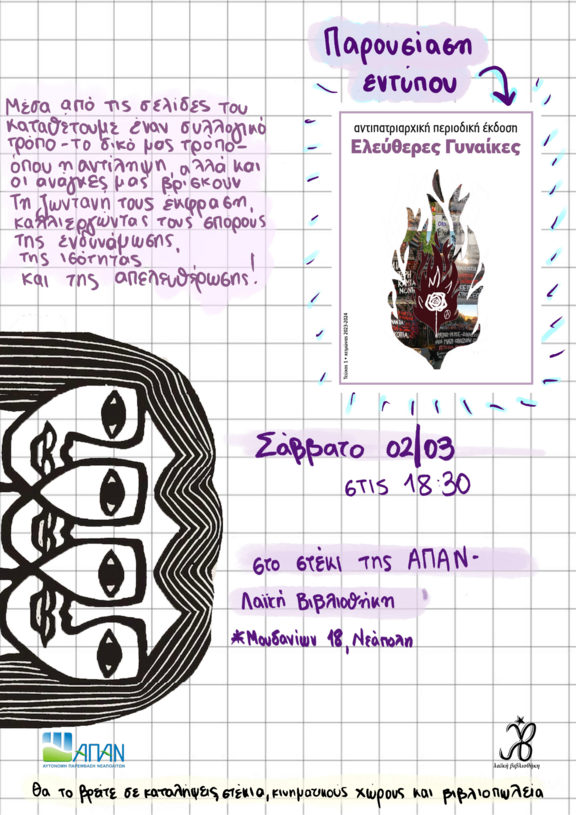 Παρουσίαση
εντύπου
Μέσα από τις σελίδες του
καταθέτουμε έναν συλλογικό
τρόπο - το δικό μας τρόπο -
όπου η αντίληψη, αλλά και
οι ανάγκες μας βρίσκουν
τη ζωντανή τους έκφραση,
καλλιεργώντας τους σπόρους
της ενδυνάμωσης,
της ισότητας
και της απελευθέρωσης!
αντιπατριαρχική περιοδική έκδοση
Ελεύθερες Γυναίκες
Τεύχος 1 • χειμώνας 2023-2024
Σάββατο 02/03
στις 18:30
στο στέκι της ΑΠΑΝ-
Λαϊκή Βιβλιοθήκη
*Μουδανίων 18, Νεάπολη
ΑΠΑΝ
ΑΥΤΟΝΟΜΗ ΠΑΡΕΜΒΑΣΗ ΝΕΑΠΟΛΙΤΩΝ
λαϊκή βιβλιοθήκη
θα το βρείτε σε καταλήψεις, στέκια, κινηματικούς χώρους και βιβλιοπωλεία